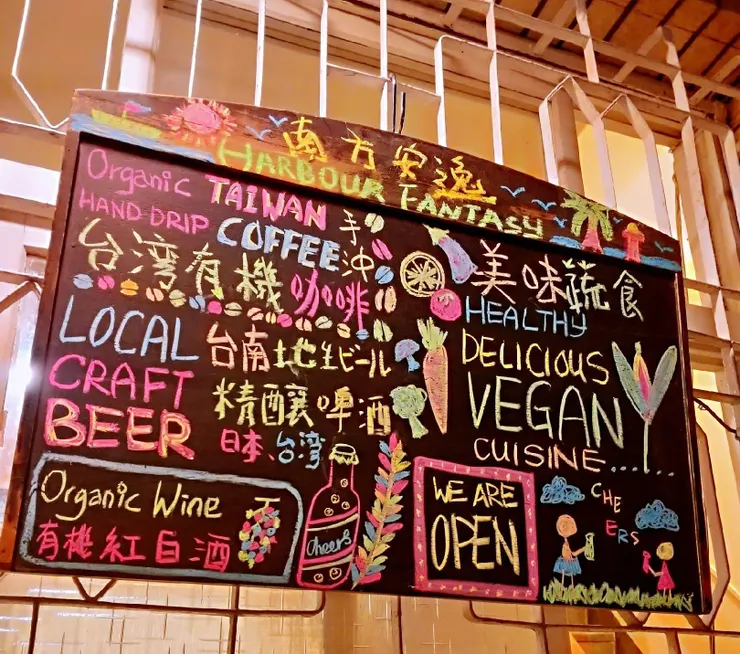 南方安逸
HARBOUR FANTASY
Organic TAIWAN
HAND-DRIP COFFEE 手沖
台湾有機咖啡
LOCAL
CRAFT
BEER
台南地生ビール
精釀啤酒
日本、台湾
Organic Wine
有機紅白酒
Cheers
美味蔬食
HEALTHY
DELICIOUS
VEGAN
CUISINE......
WE ARE
OPEN
CHEERS